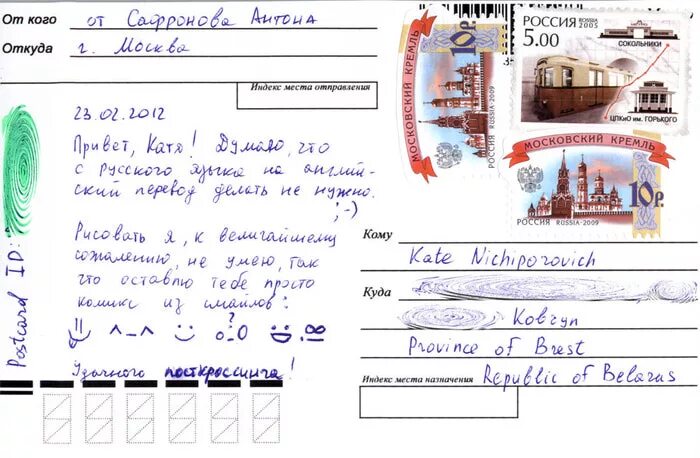 От кого от Сафронова Антона
Откуда г. Москва
Индекс места отправления
23.02.2012
Привет, Катя! Думаю, что
с русского языка на англий-
ский перевод делать не нужно.
;-)
Рисовать я, к величайшему
сожалению, не умею, так
что оставлю тебе просто
комикс из смайлов:
^_^
Удачного посткроссинга!
Postcard ID:
МОСКОВСКИЙ КРЕМЛЬ
10р.
РОССИЯ RUSSIA·2009
РОССИЯ RUSSIA 2005
5.00
СОКОЛЬНИКИ
ЦПКиО ИМ. ГОРЬКОГО
МОСКОВСКИЙ КРЕМЛЬ
10р.
РОССИЯ RUSSIA·2009
Кому
Kate Nichiporovich
Куда
Kobryn
Province of Brest
Индекс места назначения Republic of Belarus